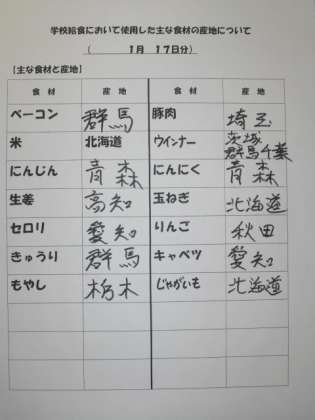 学校給食において使用した主な食材の産地について
(　　　1月　17日分)
【主な食材と産地】
食材　産地　食材　産地
ベーコン　群馬　豚肉　埼玉
米　北海道　ウインナー　茨城 群馬 千葉
にんじん　青森　にんにく　青森
生姜　高知　玉ねぎ　北海道
セロリ　愛知　りんご　秋田
きゅうり　群馬　キャベツ　愛知
もやし　栃木　じゃがいも　北海道